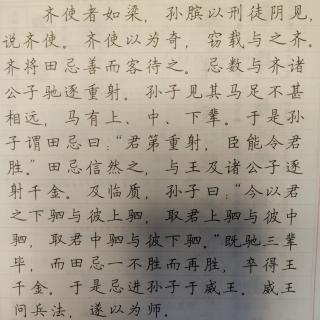 齐使者如梁，孙膑以刑徒阴见，
说齐使。齐使以为奇，窃载与之齐。
齐将田忌善而客待之。忌数与齐诸
公子驰逐重射。孙子见其马足不甚
相远，马有上、中、下辈。于是孙
子谓田忌曰：“君弟重射，臣能令君
胜。”田忌信然之，与王及诸公子逐
射千金。及临质，孙子曰：“今以君
之下驷与彼上驷，取君上驷与彼中
驷，取君中驷与彼下驷。”既驰三辈
毕，而田忌一不胜而再胜，卒得王
千金。于是忌进孙子于威王。威王
问兵法，遂以为师。